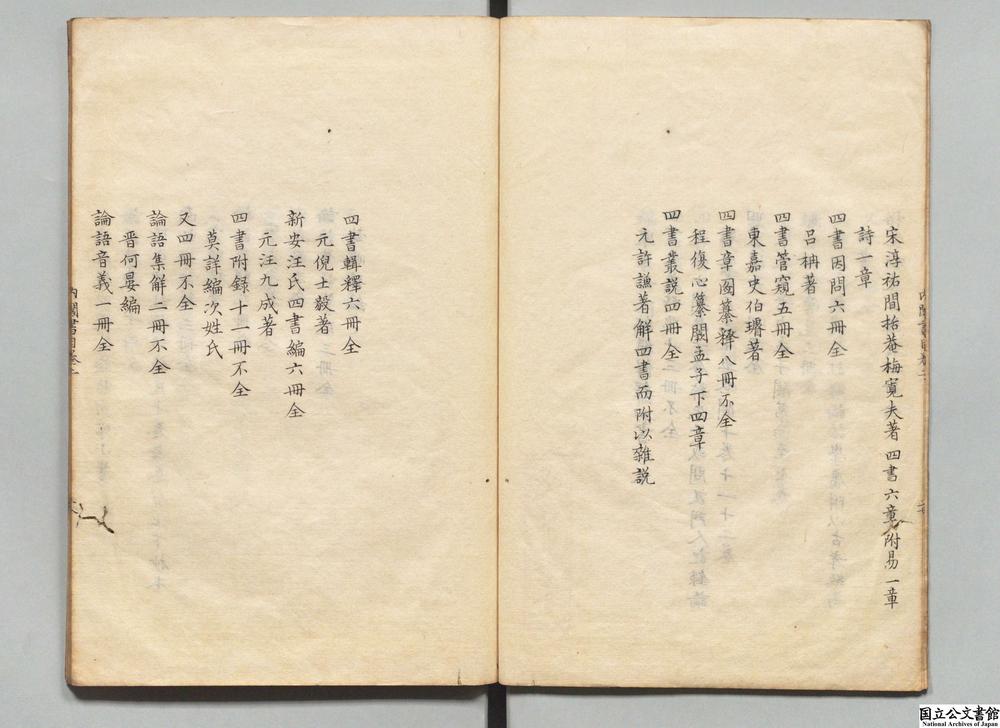 宋淳祐間拾菴梅寛夫著四書六章附易一章
詩一章
四書因問六冊全
呂柟著
四書管窺五冊全
東嘉史伯璿著
四書章圖纂釋八冊不全
程復心纂闕孟子下四章
四書叢説四冊全
元許謙著解四書而附以雜説
四書輯釋六冊全
元倪士毅著
新安汪氏四書編六冊全
元汪九成著
四書附録十一冊不全
莫詳編次姓氏
又四冊不全
論語集解二冊不全
晋何晏編
論語音義一冊全
国立公文書館
National Archives of Japan